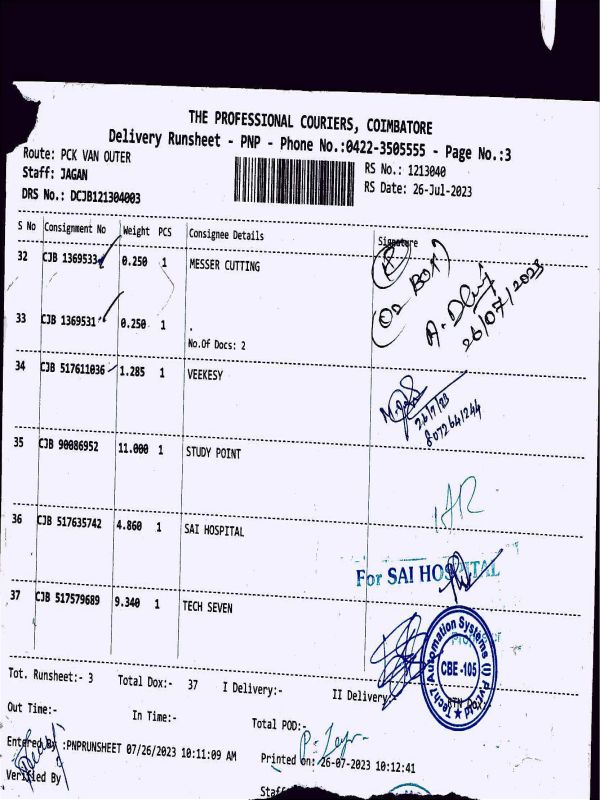 THE PROFESSIONAL COURIERS, COIMBATORE
Delivery Runsheet - PNP - Phone No.:0422-3505555 - Page No.:3
Route: PCK VAN OUTER
RS No.: 1213040
Staff: JAGAN
RS Date: 26-Jul-2023
DRS No.: DCJB121304003
S No Consignment No Weight PCS Consignee Details Signature
32 CJB 1369533 0.250 1 MESSER CUTTING
26/07/2023
33 CJB 1369531 0.250 1 .
No.Of Docs: 2
34 CJB 517611036 1.285 1 VEEKESY
26/7/23
8072641244
35 CJB 90086952 11.000 1 STUDY POINT
36 CJB 517635742 4.860 1 SAI HOSPITAL
For SAI HOSPITAL
37 CJB 517579689 9.340 1 TECH SEVEN
Tech7 Automation Systems (I) Pvt Ltd
CBE -105
Tot. Runsheet:- 3 Total Dox:- 37 I Delivery:- II Delivery
Out Time:- In Time:- Total POD:-
Entered By :PNPRUNSHEET 07/26/2023 10:11:09 AM Printed on: 26-07-2023 10:12:41
Verified By